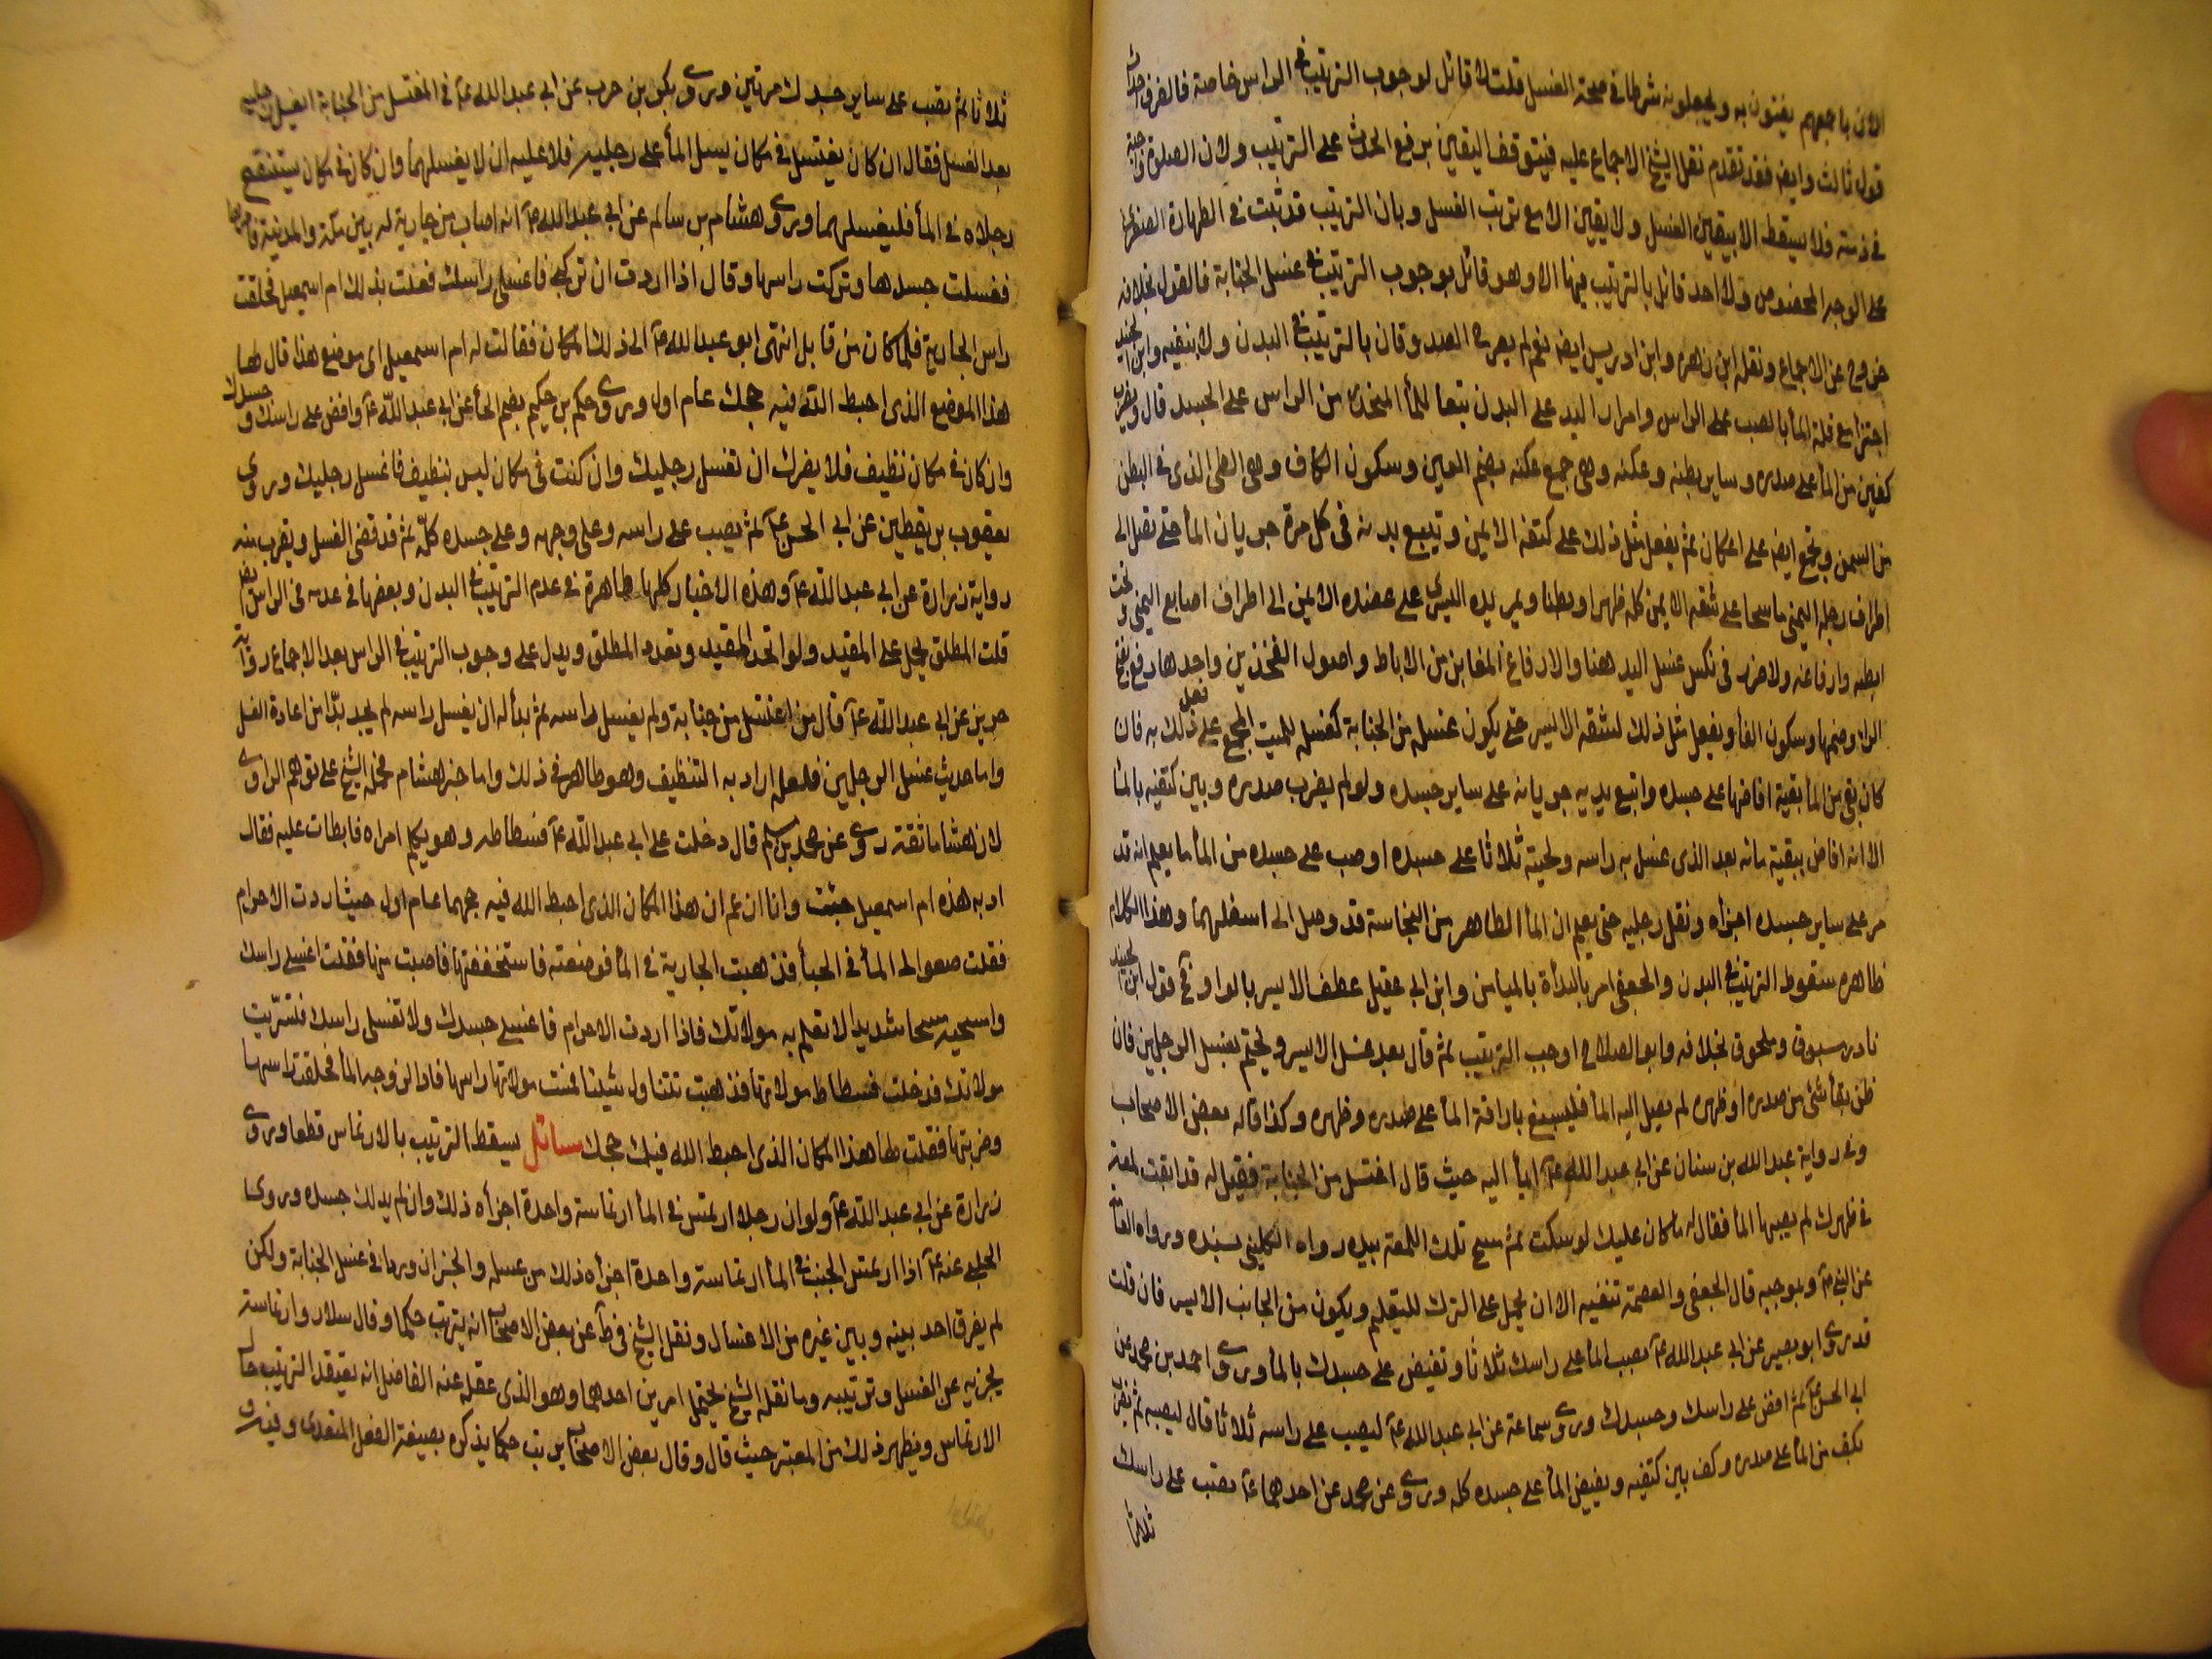 الان باجمعهم يفتون به ويجعلونه شرطا في صحة الغسل قلت لا قائل لوجوب الترتيب في الراس خاصة فالفرق احداث
قول ثالث وايضا فقد تقدم نقل الشيخ الاجماع عليه فيتوقف اليقين برفع الحدث على الترتيب ولان الصلوة واجبة
في ذمته فلا يسقط الا بيقين الغسل ولا يقين الا مع ترتيب الغسل وبان الترتيب قد ثبت في الطهارة الصغرى
على الوجه المخصوص ولا احد قائل بالترتيب فيها الا وهو قائل بوجوب الترتيب في غسل الجنابة فالقول بخلافه
خروج عن الاجماع ونقله ابن زهره وابن ادريس ايضا نعم لم يصرح الصدوقان بالترتيب في البدن ولا بنفيه وابن الجنيد
اجتزأ مع قلة الماء بالصب على الراس وامرار اليد على البدن تبعا للماء المنحدر من الراس على الجسد قال ويضرب
كفين من الماء على صدره وساير بطنه وعكنه وهي جمع عكنه بضم العين وسكون الكاف وهي الطي الذي في البطن
من السمن ويجمع ايضا على اعكان ثم يفعل مثل ذلك على كتفه الايمن ويتبع يديه في كل مرة جريان الماء حتى تصل الى
اطراف رجله اليمنى ماسحا على شقه الايمن كله ظهرا وبطنا ويمر يده اليسرى على عضده الايمن الى اطراف اصابع اليمنى وتحت
ابطيه وارفاغه ولا ضرر في نكس غسل اليد هنا والارفاغ المغابن من الاباط واصول الفخذين واحدها رفع بفتح
الراء وضمها وسكون الفاء ويفعل مثل ذلك لشقه الايسر حتى يكون غسله من الجنابة كغسله للميت المجمع على فعل ذلك به فان
كان بقي من الماء بقية افاضها على جسده واتبع يديه جريانه على ساير جسده ولو لم يضرب صدره وبين كتفيه بالماء
الا انه افاض ببقية مائه بعد الذي غسل به راسه ولحيته ثلاثا على جسده او صب على جسده من الماء ما يعلم انه قد
مر على ساير جسده اجزأه ونقل رجليه حتى يعلم ان الماء الطاهر من النجاسة قد وصل الى اسفلهما وهذا الكلام
ظاهره سقوط الترتيب في البدن والجعفي امر بالبدأة بالميامن وابن ابي عقيل عطف الايسر بالواو فح قول ابن الجنيد
نادر مسبوق وملحوق بخلافه وابو الصلاح اوجب الترتيب ثم قال بعد غسل الايسر ويختم بغسل الرجلين فان
ظن بقاء شئ من صدره او ظهره لم يصل اليه الماء فليسبغ باراقة الماء على صدره وظهره وكذا قاله بعض الاصحاب
وفي رواية عبد الله بن سنان عن ابي عبد الله ع ايماء اليه حيث قال اغتسل من الجنابة فقيل له قد ابقت لمعة
في ظهرك لم يصبها الماء فقال له ما كان عليك لو سكت ثم مسح تلك اللمعة بيده رواه الكليني بسنده ورواه العامة
عن النبي ص وبموجبه قال الجعفي والعصمة تنفيه الا ان يحمل على الترك للتعليم ويكون من الجانب الايسر فان قلت
قد روى ابو بصير عن ابي عبد الله ع تصب الماء على راسك ثلاثا وتفيض على جسدك بالماء وروى احمد بن محمد عن
ابي الحسن ع ثم افض على راسك وجسدك وروى سماعة عن ابي عبد الله ع ليصب على راسه ثلاثا قال ليصبه ثم يضرب
بكف من الماء على صدره وكف بين كتفيه ويفيض الماء على جسده كله وروى عن محمد عن احدهما ع تصب على راسك
ثلاثا
ثلاثا ثم تصب على ساير جسدك مرتين وروى بكر بن حرب عن ابي عبد الله ع في المغتسل من الجنابة ايغسل رجليه
بعد الغسل فقال ان كان يغتسل في مكان يسيل الماء على رجليه فلا عليه ان لا يغسلهما وان كان في مكان يستنقع
رجلاه في الماء فليغسلهما وروى هشام بن سالم عن ابي عبد الله ع انه اصاب من جارية له بين مكة والمدينة فامرها
فغسلت جسدها وتركت راسها وقال اذا اردت ان تركبي فاغسلي راسك ففعلت بذلك ام اسمعيل فحلقت
راس الجارية فلما كان من قابل انتهى ابو عبد الله ع الى ذلك المكان فقالت له ام اسمعيل اي موضع هذا قال لها
هذا الموضع الذي احبط الله فيه حجك عام اول وروى حكم بن حكيم بضم الحاء عن ابي عبد الله ع وافض على راسك وجسدك
وان كان في مكان نظيف فلا يضرك ان تغسل رجليك وان كنت في مكان ليس بنظيف فاغسل رجليك وروى
يعقوب بن يقطين عن ابي الحسن ع ثم يصب على راسه وعلى وجهه وعلى جسده كله ثم قد قضى الغسل ويقرب منه
رواية زرارة عن ابي عبد الله ع وهذه الاخبار كلها ظاهرة في عدم الترتيب في البدن وبعضها في عدمه في الراس ايضا
قلت المطلق يحمل على المقيد ولو اتحد المقيد وتعدد المطلق ويدل على وجوب الترتيب في الراس بعد الاجماع رواية
حريز عن ابي عبد الله ع قال من اغتسل من جنابة ولم يغسل راسه ثم بدأ له ان يغسل راسه لم يجد بدا من اعادة الغسل
واما حديث غسل الرجلين فلعله اراد به التنظيف وهو ظاهر في ذلك واما خبر هشام فحمله الشيخ على توهم الراوى
لان هشاما ثقة روى عن محمد بن مسلم قال دخلت على ابي عبد الله ع فسطاطه وهو يكلم امراه فابطات عليه فقال
ادنه هذه ام اسمعيل جئت وانا ازعم ان هذا المكان الذي احبط الله فيه حجهما عام اول حيث اردت الاحرام
فقلت ضعوا لي الماء في الخباء فذهبت الجارية في الماء فوضعته فاستخففتها فاصبت منها فقلت اغسلي راسك
وامسحيه مسحا شديدا لا تعلم به مولاتك فاذا اردت الاحرام فاغسلي جسدك ولا تغسلي راسك فتستريب
مولاتك فدخلت فسطاط مولاتها فذهبت تتناول شيئا فمست مولاتها راسها فاذا لزوجة الماء فحلقت راسها
وضربتها فقلت لها هذا المكان الذي احبط الله فيك حجك مسائل يسقط الترتيب بالارتماس قطعا وروى
زرارة عن ابي عبد الله ع ولو ان رجلا ارتمس في الماء ارتماسة واحدة اجزأه ذلك وان لم يدلك جسده وروى
الحلبي عنه ع اذا ارتمس الجنب في الماء ارتماسة واحدة اجزأه ذلك من غسله والخبران وردا في غسل الجنابة ولكن
لم يفرق احد بينه وبين غيره من الاغسال ونقل الشيخ في ط عن بعض الاصحاب انه يترتب حكما وقال سلار وارتماسة
يجزيه عن الغسل وترتيبه وما نقله الشيخ يحتمل امرين احدهما وهو الذي عقله عنه الفاضل انه يعتقد الترتيب حال
الارتماس ويظهر ذلك من المعتبر حيث قال وقال بعض الاصحاب يرتب حكما يذكره بصيغة الفعل المتعدي وفيه